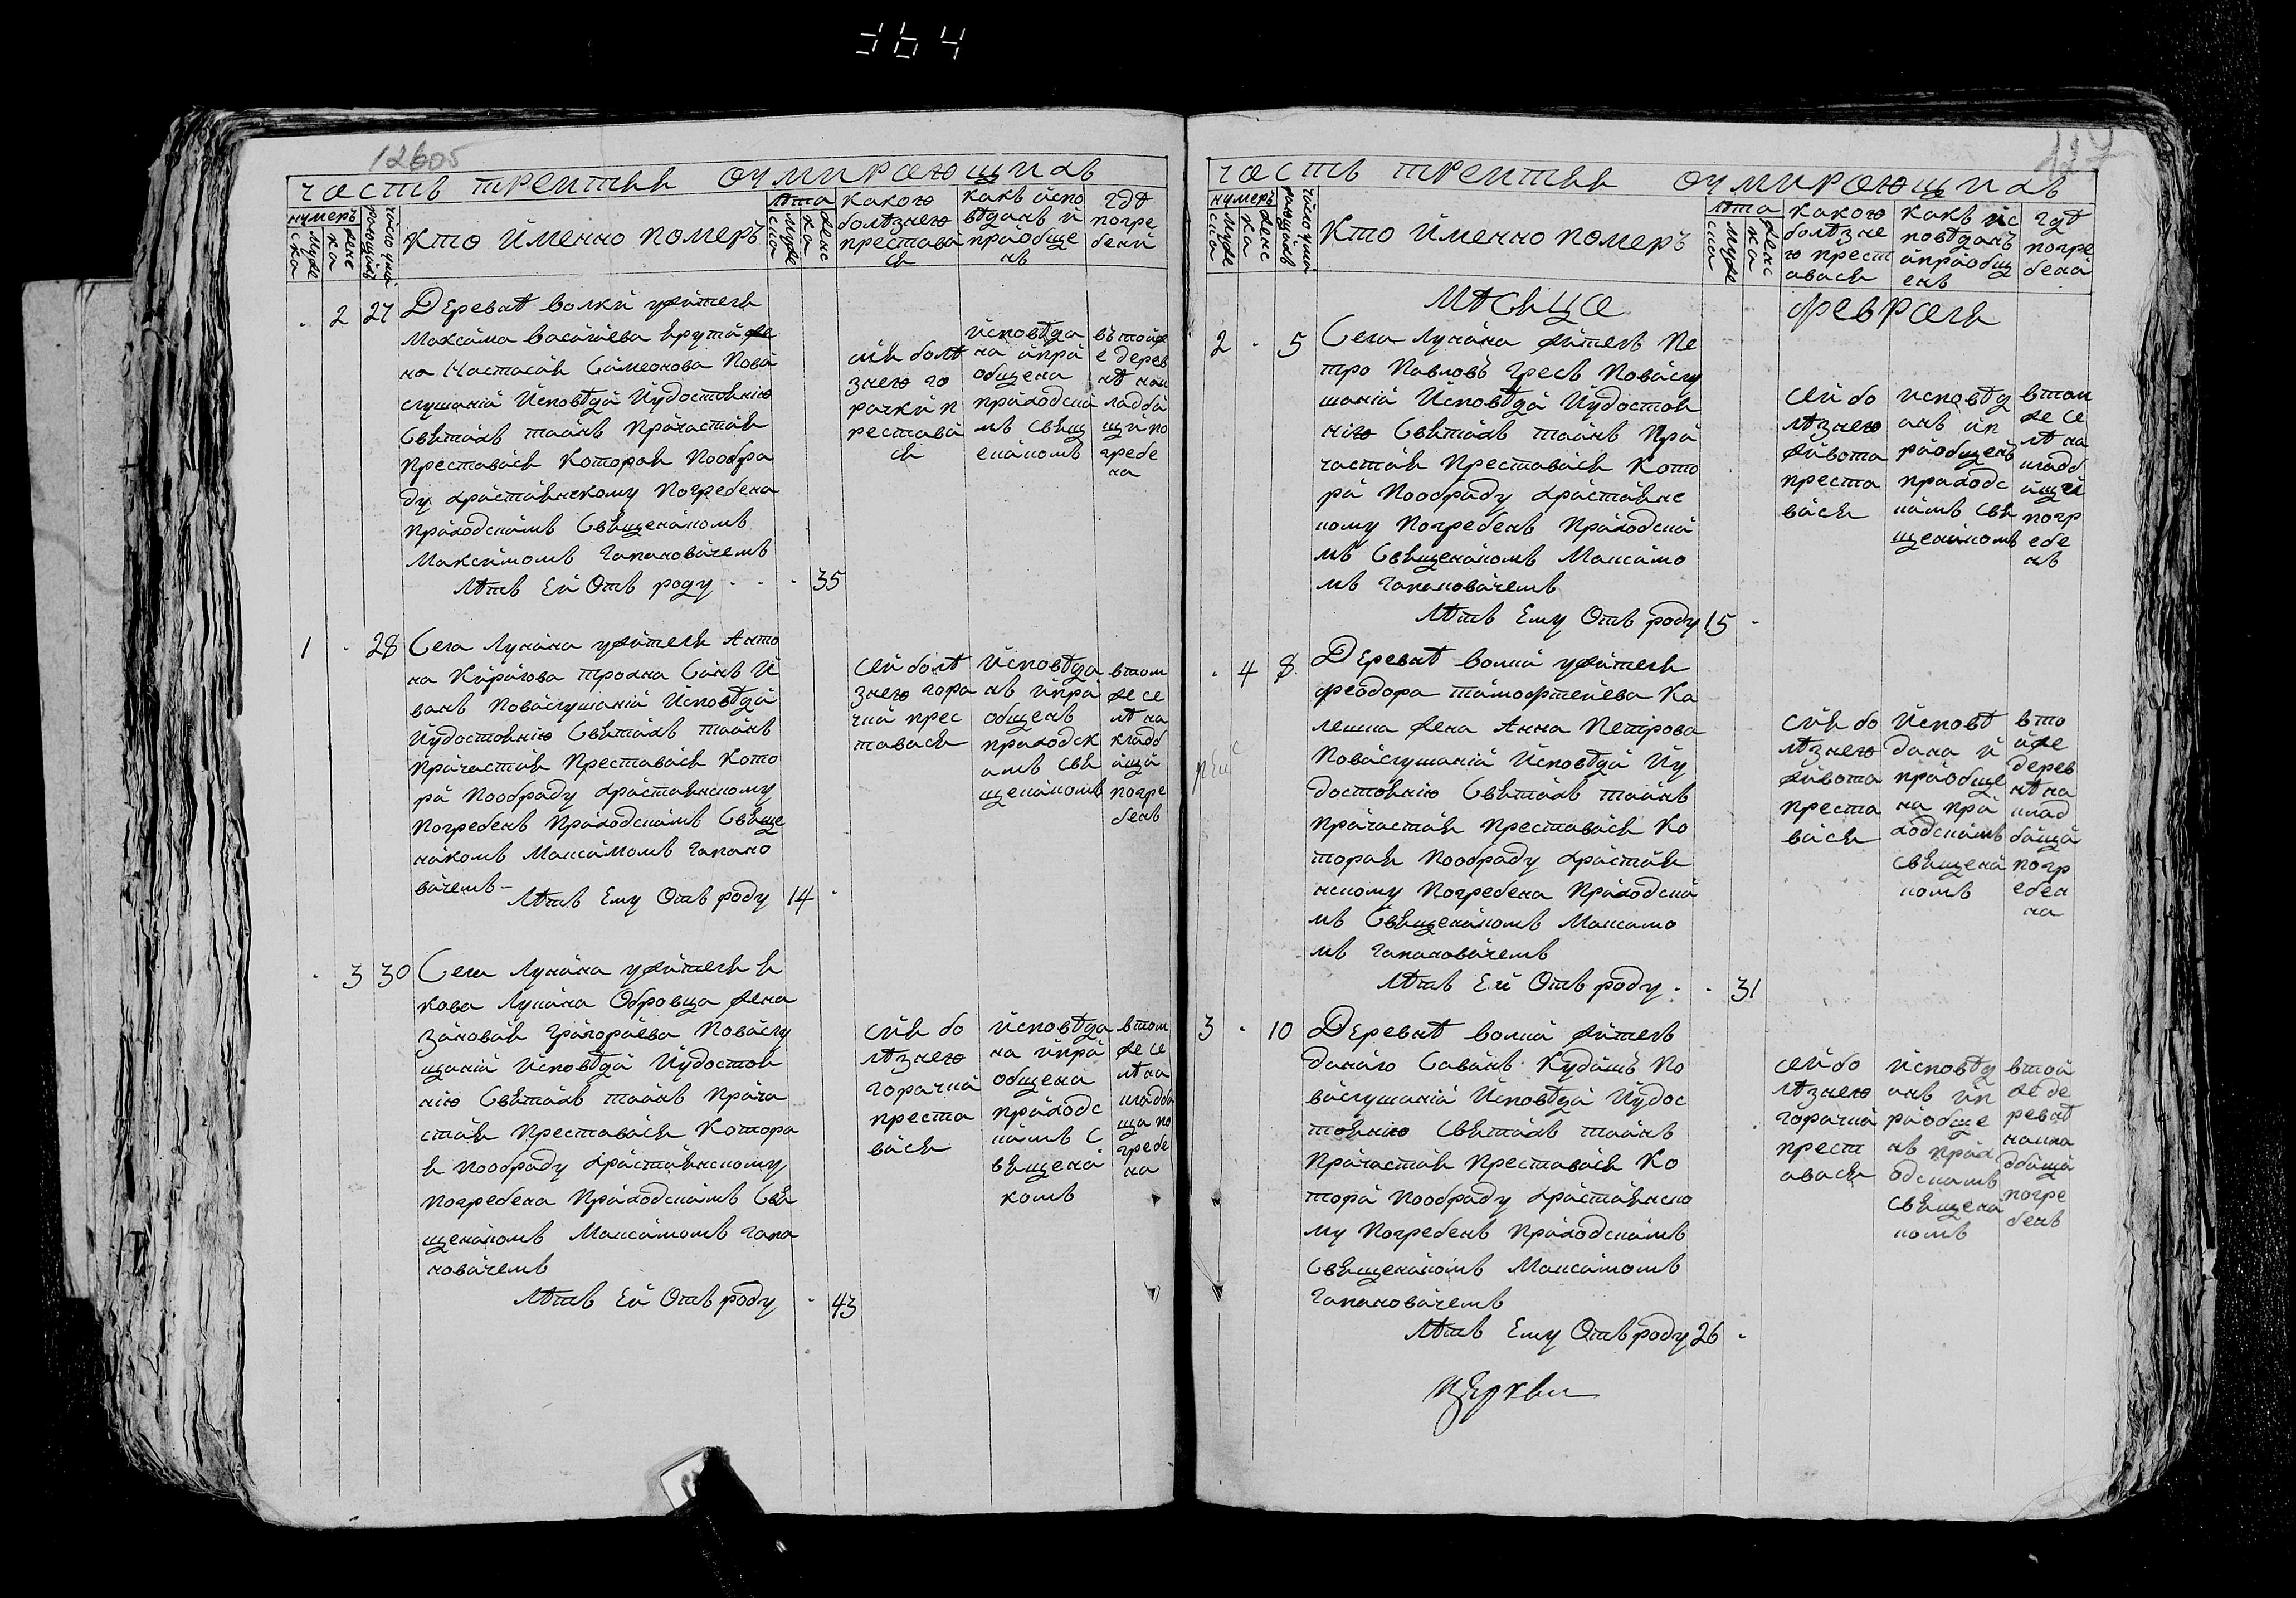 364
12605
часть третья о умирающихъ
нумеръ
мужеска
женска
число умирающихъ
кто именно померъ
лѣта
мужеска
женска
какою
болѣзнею
преставися
какъ испо
вѣданъ и
приобще
нъ
гдѣ
погре
бени
2 27 Деревнѣ Волки жителя
Максима Василіева Крута же
на Настасія Симеонова Пови
слушаніи Исповѣди Иудостоянію
Святихъ таинъ Причастія
Преставися Которая Пообра
ду христіянскому Погребена
Приходскимъ Священикомъ
Максимомъ Гапановичемъ
Лѣтъ Ей Отъ роду 35
сия болѣ
знею го
рачки п
рестави
ся
исповѣда
на ипри
общена
приходски
мъ свящ
еникомъ
въ тойж
е дерев
нѣ нак
ладби
щи по
гребе
на
1 28 Села Лунина жителя Анто
на Кирилова трохна Синъ И
ванъ Повислушаніи Исповѣди
Иудостоянію Святихъ таинъ
Причастія Преставися Кото
ри Пообраду христіянскому
Погребенъ Приходскимъ Свяще
никомъ Максимомъ Гапано
вичемъ
Лѣтъ Ему Отъ роду 14
сей болѣ
знею гора
чки прес
тавися
исповѣда
нъ ипри
общенъ
приходск
имъ свя
щеникомъ
втом
же се
лѣ на
кладб
ищи
погре
бенъ
3 30 Села Лунина жителя Я
кова Лунина Обровца жена
Зиновия Григориева Повислу
шании Исповѣди Иудостоя
нію Святихъ таинъ Прича
стія Преставися Котора
я Пообраду христіянскому
Погребена Приходскимъ Свя
щеникомъ Максимомъ Гапа
новичемъ
Лѣтъ Ей Отъ роду 43
сия бо
лѣзнею
горачки
преста
вися
исповѣда
на ипри
общена
приходс
кимъ с
вящени
комъ
втом
же се
лѣ на
кладби
щи по
гребе
на
117
часть третья о умирающихъ
нумеръ
мужеска
женска
число умирающихъ
Кто именно померъ
лѣта
мужеска
женска
какою
болѣзне
ю прест
ависи
какъ ис
повѣданъ
иприобщ
енъ
гдѣ
погре
бени
Мѣсяца февраля
2 5 Села Лунина житель Пе
тро Павловъ Гресь Повислу
шании Исповѣди Иудостоя
нію Святихъ таинъ При
частія Преставися Кото
ри Пообраду христіянс
кому Погребенъ Приходски
мъ Священикомъ Максимо
мъ Гапановичемъ
Лѣтъ Ему Отъ роду 15
сей бо
лѣзнею
живота
преста
вися
исповѣд
анъ ип
риобщенъ
приходс
кимъ свя
щеникомъ
втом
же се
лѣ на
кладб
ищи
погр
ебе
нъ
4 8 Деревнѣ Волки жителя
Феодора Тимофтеиева Ка
лешка жена Анна Петрова
Повислушании Исповѣди Иу
достоянію Святихъ таинъ
Причастія Преставися Ко
торая Пообраду христія
нскому Погребена Приходски
мъ Священикомъ Максимо
мъ Гапановичемъ
Лѣтъ Ей Отъ роду 31
сия бо
лѣзнею
живота
преста
вися
исповѣ
дана и
приобще
на при
ходскимъ
священи
комъ
вто
йже
дерев
нѣ на
клад
бищи
погр
ебен
на
3 10 Деревнѣ Волки житель
Данило Савинъ Кудишъ По
вислушании Исповѣди Иудос
тоянію Святихъ таинъ
Причастія Преставися Ко
тори Пообраду христіянско
му Погребенъ Приходскимъ
Священикомъ Максимомъ
Гапановичемъ
Лѣтъ Ему Отъ роду 26
сей бо
лѣзнею
горачки
прест
ависи
исповѣд
анъ ип
риобще
нъ прих
одскимъ
священи
комъ
втой
же де
ревнѣ
накла
дбищи
погре
бенъ
церкви